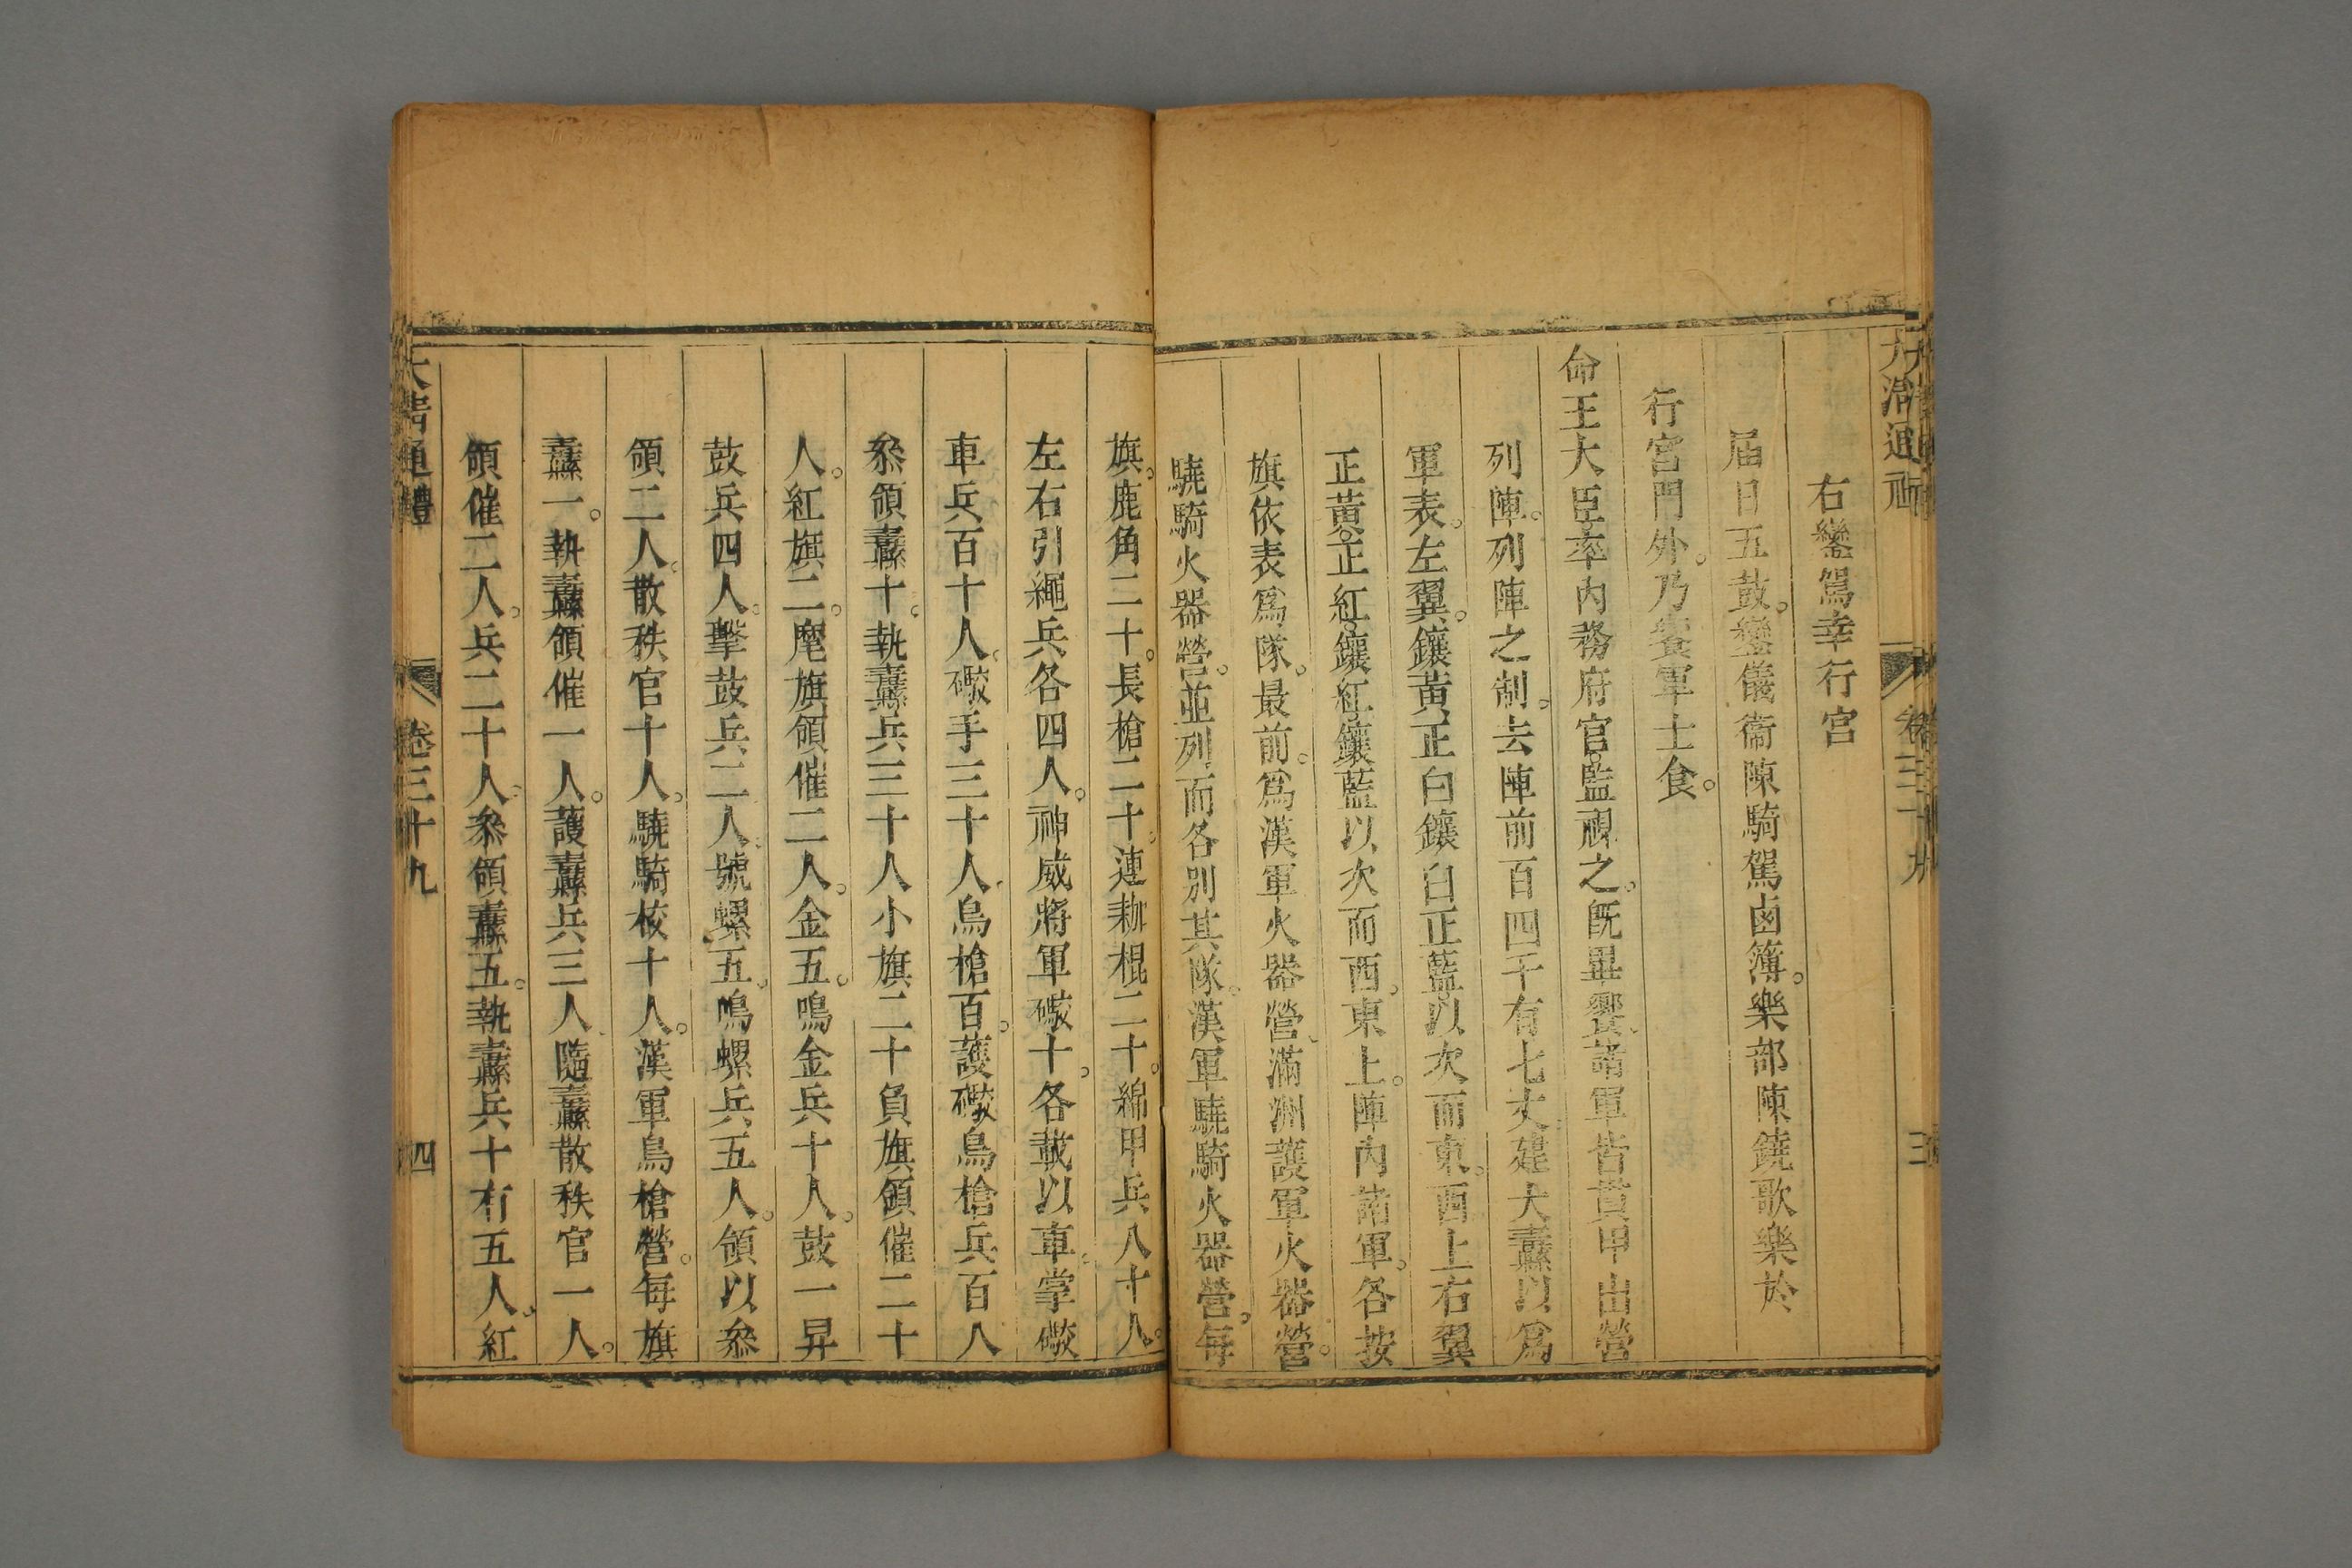 大清通禮 卷三十九 三
右鑾駕幸行宮
屆日五鼓。鑾儀衞陳騎駕鹵簿。樂部陳鐃歌樂於
行宮門外。乃饗軍士食。
命王大臣率內務府官監視之。旣畢饗。諸軍皆貫甲出營
列陣。列陣之制。去陣前百四千有七丈。建大纛以爲
軍表。左翼。鑲黃。正白。鑲白。正藍。以次而東。西上。右翼
正黃。正紅。鑲紅。鑲藍。以次而西。東上。陣內諸軍。各按
旗依表爲隊。最前。爲漢軍火器營。滿洲護軍火器營。
驍騎火器營。並列而各別其隊。漢軍驍騎火器營。每
旗。鹿角二十。長槍二十。連耞棍二十。綿甲兵八十人。
左右引繩兵各四人。神威將軍礮十。各載以車。掌礮
車兵百十人。礮手三十人。鳥槍百。護礮鳥槍兵百八
叅領纛十。執纛兵三十人。小旗二十。負旗領催二十
人。紅旗二。麾旗領催二人。金五。鳴金兵十人。鼓一。舁
鼓兵四人。擊鼓兵二人。號螺五。鳴螺兵五人。領以叅
領二人。散秩官十人。驍騎校十人。漢軍鳥槍營。每旗
纛一。執纛領催一人。護纛兵三人。隨纛散秩官一人。
領催二人。兵二十人。叅領纛五。執纛兵十有五人。紅
大清通禮 卷三十九 四